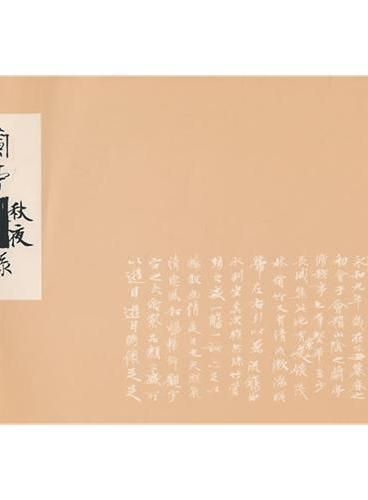 蘭亭
秋夜
永和九年歲在癸丑暮春之
初會于會稽山陰之蘭亭
脩稧事也羣賢畢至少
長咸集此地有峻領茂
林脩竹又有清流激湍暎
帶左右引以為流觴曲
水列坐其次雖無絲竹管
弦之盛一觴一詠亦足以
暢敘幽情是日也天朗氣
清惠風和暢仰觀宇
宙之大俯察品類之盛所
以遊目遊目騁懷足足